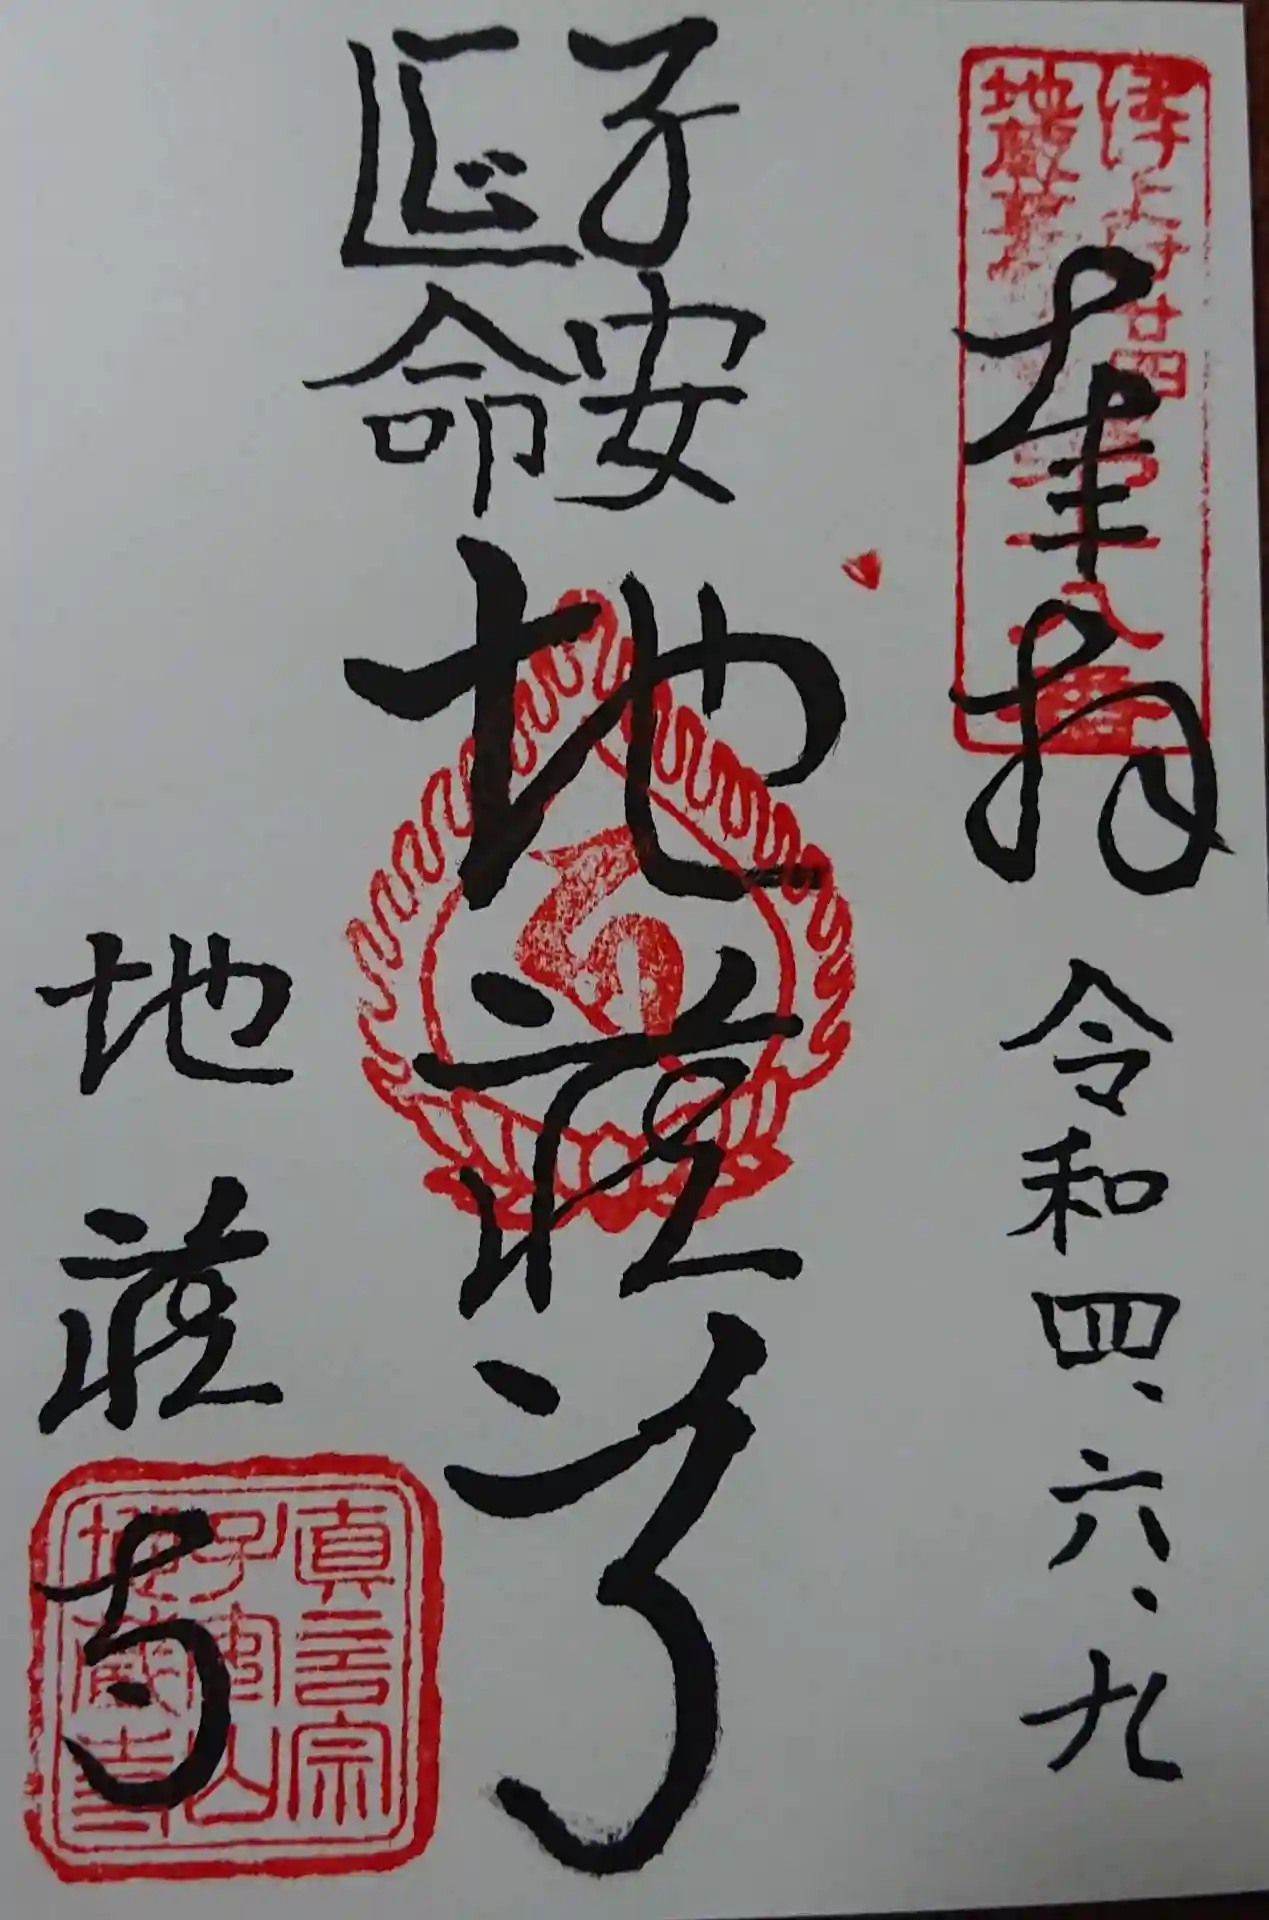 奉拝
令和四、六、九
子安
延命
地蔵尊
地蔵寺
地蔵尊
廿四
八番
真言宗
子安山
地蔵寺